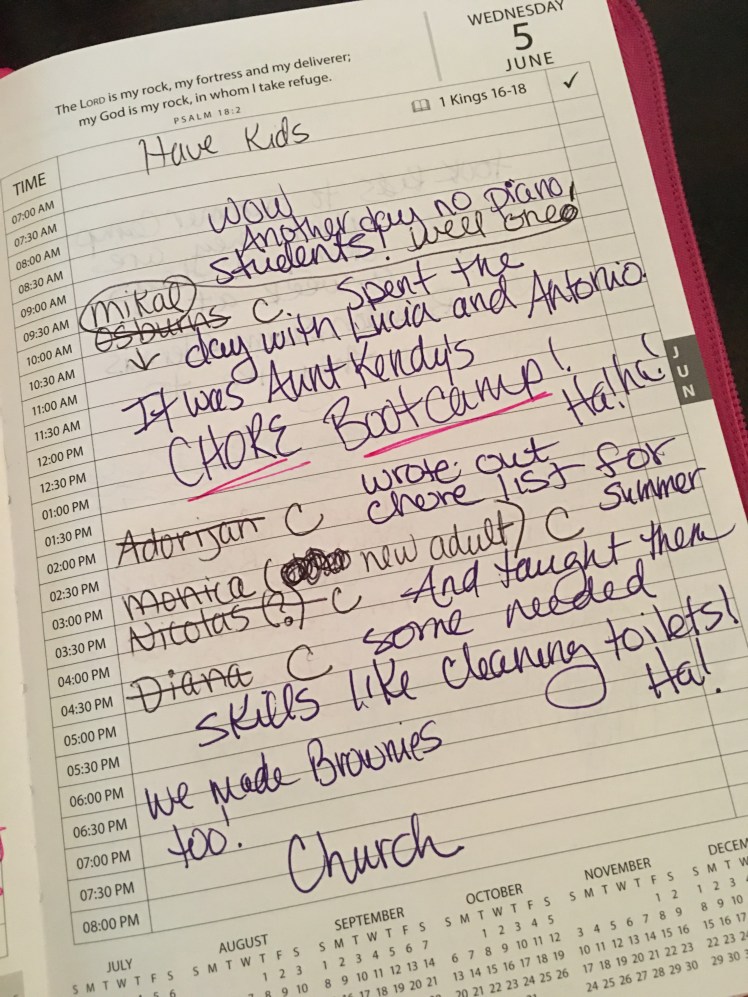 The LORD is my rock, my fortress and my deliverer;
my God is my rock, in whom I take refuge.
PSALM 18:2
WEDNESDAY
5
JUNE
1 Kings 16-18
✓
TIME
Have Kids
07:00 AM
07:30 AM
08:00 AM
08:30 AM
09:00 AM
09:30 AM
10:00 AM
10:30 AM
11:00 AM
11:30 AM
12:00 PM
12:30 PM
01:00 PM
01:30 PM
02:00 PM
02:30 PM
03:00 PM
03:30 PM
04:00 PM
04:30 PM
05:00 PM
05:30 PM
06:00 PM
06:30 PM
07:00 PM
07:30 PM
08:00 PM
WOW
Another day no piano
students! Well one
Mikae
Osburns C. Spent the
day with Lucia and Antonio
It was Aunt Kendy's
CHORE Bootcamp!
Ha!ha!
wrote out
chore list for
summer
Adorijan C
Monica ( new adult) C
Nicolas (?) C
And taught them
some needed
Diana C
skills like cleaning toilets!
Ha!
we made Brownies
too!
Church
JUN
JULY
S M T W T F S
AUGUST
S M T W T F S
1 2 3
SEPTEMBER
S M T W T F S
1 2 3 4 5 6 7
8 9 10 11 12 13 14
OCTOBER
S M T W T F S
1 2 3 4 5
6 7 8 9 10 11 12
13 14 15 16 17 18 19
20 21 22 23 24 25 26
NOVEMBER
S M T W T F S
1 2
3 4 5 6 7 8 9
10 11 12 13 14 15 16
17 18 19 20 21 22 23
24 25 26 27 28 29 30
S M T W
1 2 3 4
8 9 10
15 16 17
22 23